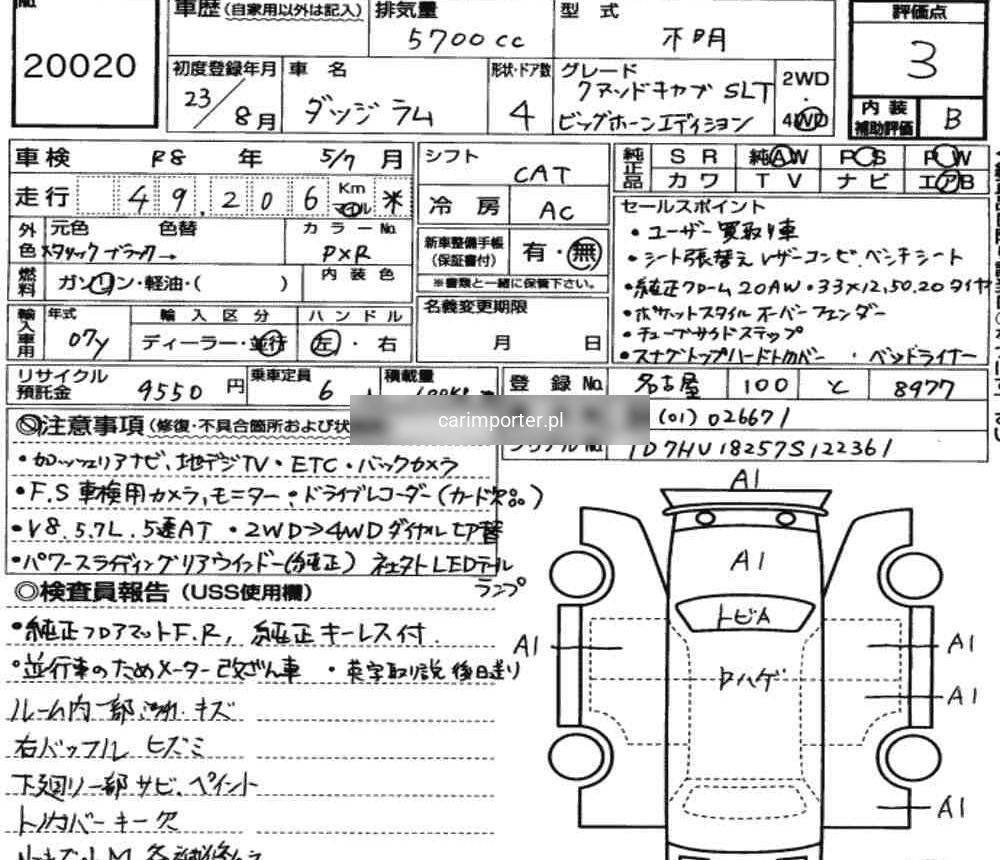 No.
20020
車歴(自家用以外は記入)
排気量
5700cc
型式
不明
評価点
3
内装補助評価
B
初度登録年月
23/8月
車名
ダッジラム
形状・ドア数
4
グレード
クアッドキャブ SLT
ビッグホーンエディション
2WD
・
4WD
車検 R8年 5/7月
走行 49,206 Km マイル 米
外色 元色 色替
メタリックブラック→
カラーNo.
PXR
内装色
燃料 ガソリン・軽油・( )
輸入車用 年式
07y
輸入区分
ディーラー・並行
ハンドル
左・右
シフト
CAT
冷房
AC
新車整備手帳(保証書付)
有・無
※書類と一緒に保管下さい。
名義変更期限
月 日
純正品 SR 純AW PS PW
カワ TV ナビ エアB
セールスポイント
・ユーザー買取り車
・シート張替えレザーコンビ,ベンチシート
・純正クローム20AW・33×12,50.20タイヤ
・ポケットスタイルオーバーフェンダー
・チューブサイドステップ
・スナグトップハードトノカバー ・ベッドライナー
リサイクル預託金
9550円
乗車定員
6人
積載量
登録No.
名古屋 100 と 8977
carimporter.pl
(01) 026671
シリアルNo.
1D7HU18257S122361
◎注意事項(修復・不具合箇所および状
・カロッツェリアナビ,地デジTV・ETC・バックカメラ
・F,S車検用カメラ,モニター・ドライブレコーダー(カード欠品)
・V8,5.7L,5速AT ・2WD⇒4WDダイヤル切替
・パワースライディングリアウインドー(純正) LEDテールランプ
◎検査員報告(USS使用欄)
・純正フロアマットF.R, 純正キーレス付
・並行車のためメーター改ざん車 ・英字取り説後日送り
ルーム内一部汚れ キズ
右バッフル ヒズミ
下廻り一部サビ,ペイント
トノカバーキー欠
A1
A1
トビA
ロハゲ
A1
A1
A1
A1